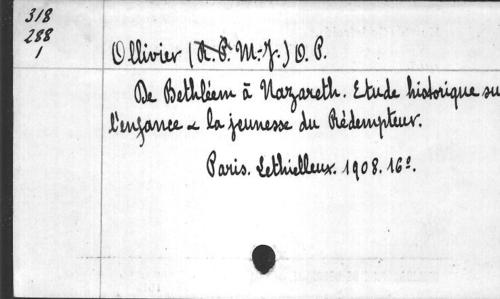 318
288
1
Ollivier (R. P. M.-J.) O. P.
De Bethléem à Nazareth. Etude historique su
l'enfance & la jeunesse du Rédempteur.
Paris. Lethielleux. 1908. 16º.